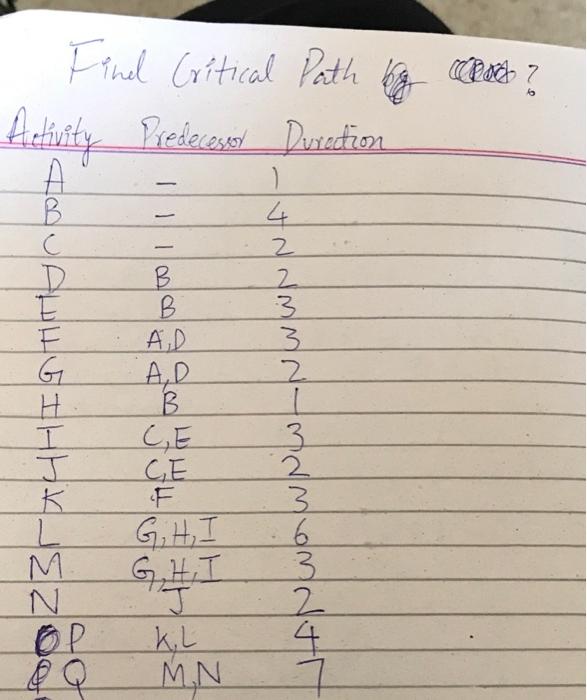 Find Critical Path by ?
Activity Predecessor Duration
A - 1
B - 4
C - 2
D B 2
E B 3
F A,D 3
G A,D 2
H B 1
I C,E 3
J C,E 2
K F 3
L G,H,I 6
M G,H,I 3
N J 2
P K,L 4
Q M,N 7